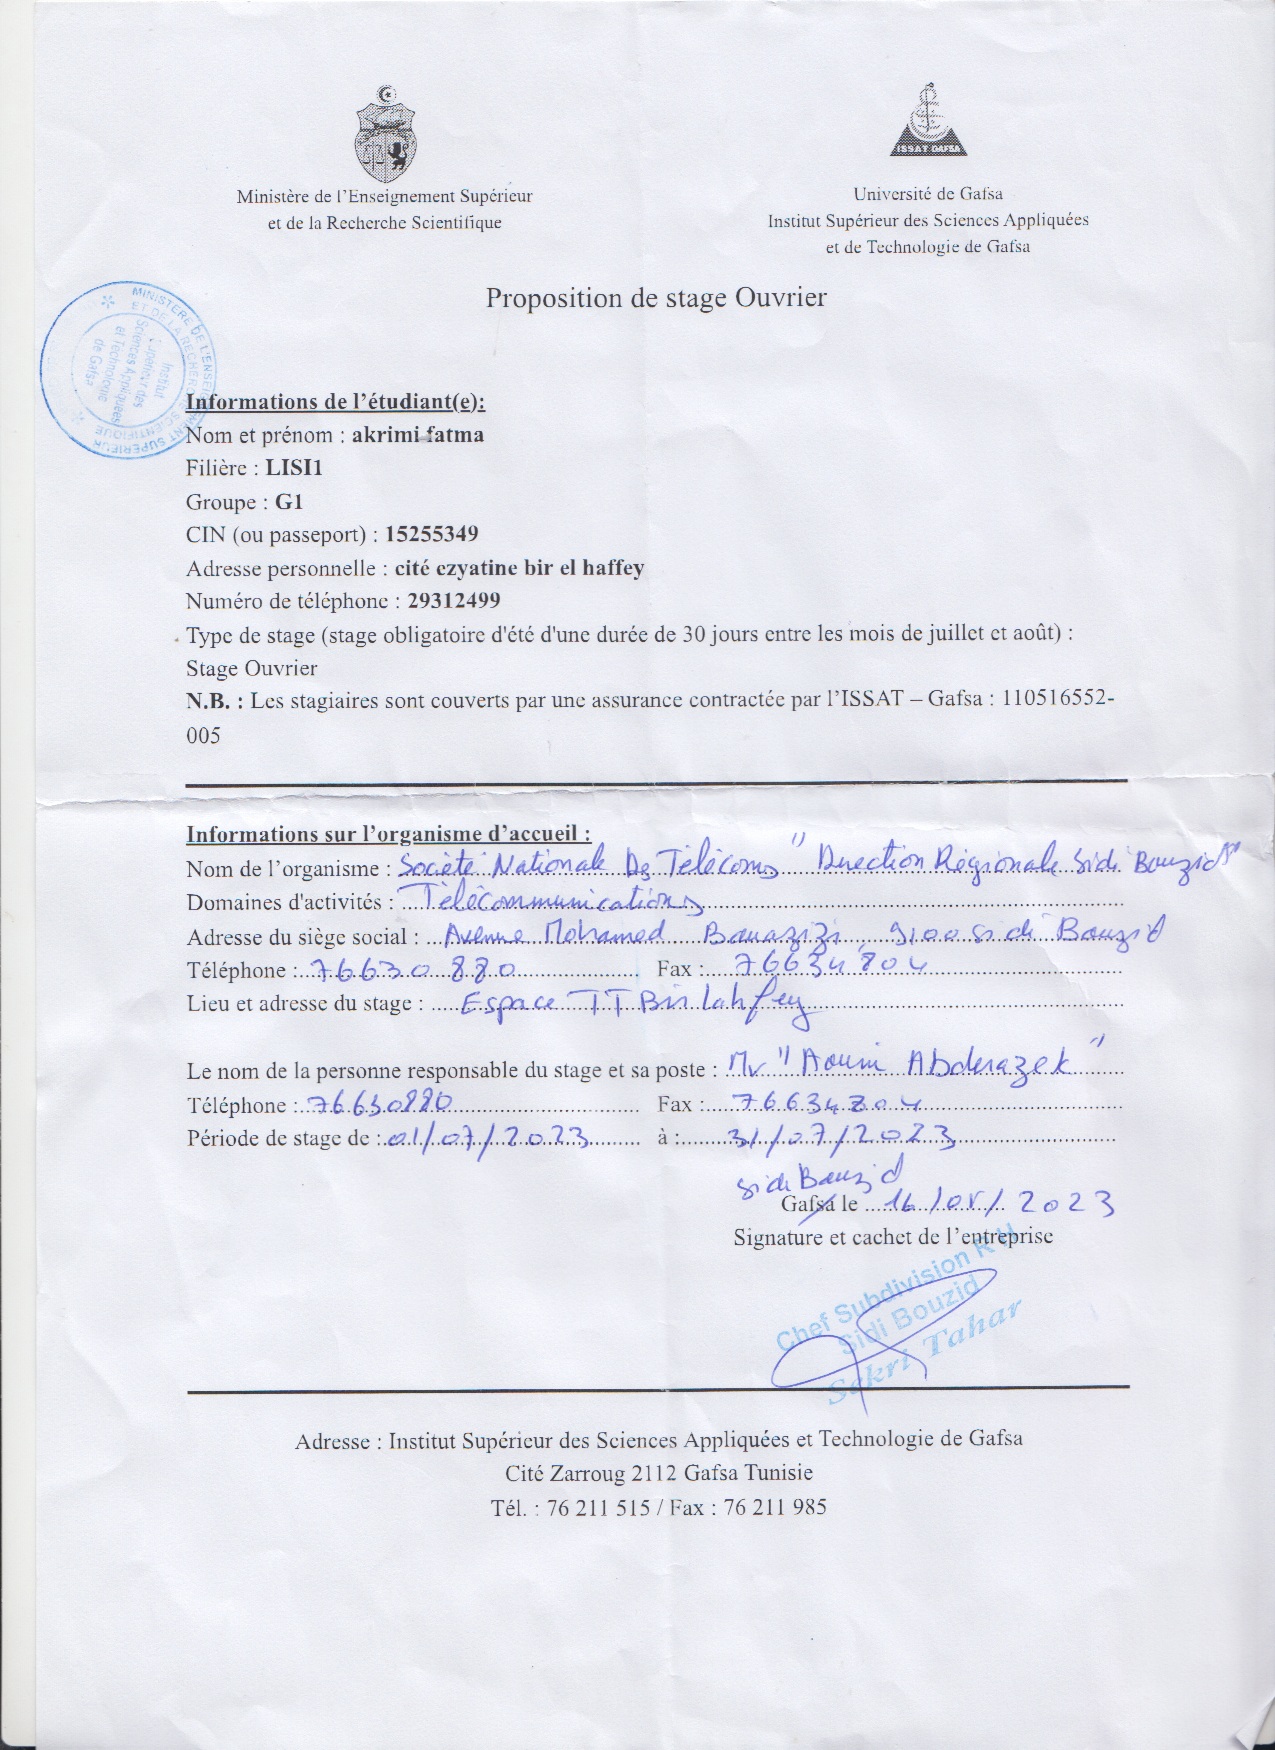 ISSAT GAFSA
Ministère de l'Enseignement Supérieur
et de la Recherche Scientifique
Université de Gafsa
Institut Supérieur des Sciences Appliquées
et de Technologie de Gafsa
Proposition de stage Ouvrier
MINISTERE DE L'ENSEIGNEMENT SUPERIEUR
ET DE LA RECHERCHE SCIENTIFIQUE
Institut
Supérieur des
Sciences Appliquées
et Technologie
de Gafsa
Informations de l'étudiant(e):
Nom et prénom : akrimi fatma
Filière : LISI1
Groupe : G1
CIN (ou passeport) : 15255349
Adresse personnelle : cité ezyatine bir el haffey
Numéro de téléphone : 29312499
Type de stage (stage obligatoire d'été d'une durée de 30 jours entre les mois de juillet et août) :
Stage Ouvrier
N.B. : Les stagiaires sont couverts par une assurance contractée par l'ISSAT – Gafsa : 110516552-
005
Informations sur l'organisme d'accueil :
Nom de l'organisme : Société Nationale Des Télécoms " Direction Régionale Sidi Bouzid "
Domaines d'activités : Télécommunications
Adresse du siège social : Avenue Mohamed Bouazizi, 9100 Sidi Bouzid
Téléphone : 76630 880 Fax : 76634804
Lieu et adresse du stage : Espace TT Bir lahfey
Le nom de la personne responsable du stage et sa poste : Mr " Aouni Abderazek "
Téléphone : 76630880 Fax : 76634804
Période de stage de : 01/07/2023 à : 31/07/2023
Sidi Bouzid
Gafsa le 16/ /2023
Signature et cachet de l'entreprise
Chef Subdivision R H
Sidi Bouzid
Sakri Tahar
Adresse : Institut Supérieur des Sciences Appliquées et Technologie de Gafsa
Cité Zarroug 2112 Gafsa Tunisie
Tél. : 76 211 515 / Fax : 76 211 985